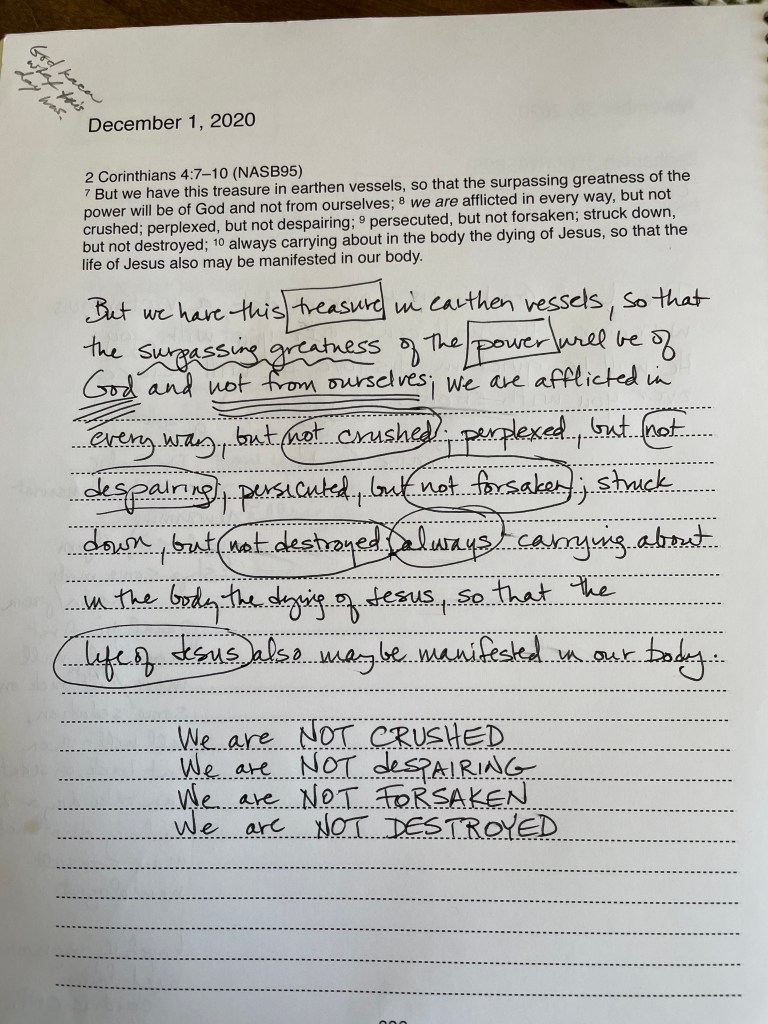 God knew
what this
day was.
December 1, 2020
2 Corinthians 4:7–10 (NASB95)
7 But we have this treasure in earthen vessels, so that the surpassing greatness of the
power will be of God and not from ourselves; 8 we are afflicted in every way, but not
crushed; perplexed, but not despairing; 9 persecuted, but not forsaken; struck down,
but not destroyed; 10 always carrying about in the body the dying of Jesus, so that the
life of Jesus also may be manifested in our body.
But we have this treasure in earthen vessels, so that
the surpassing greatness of the power will be of
God and not from ourselves; we are afflicted in
every way, but not crushed; perplexed, but not
despairing; persecuted, but not forsaken; struck
down, but not destroyed; always carrying about
in the body the dying of Jesus, so that the
life of Jesus also may be manifested in our body.
We are NOT CRUSHED
We are NOT desPAIRING
We are NOT FORSAKEN
We are NOT DESTROYED